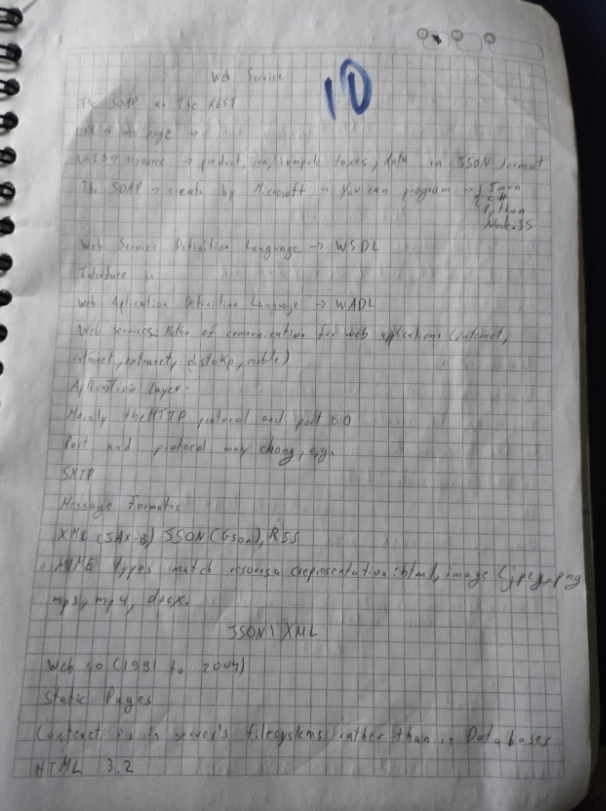 Web Service
10
The SOAP an The REST
URL web page →
URIS → resource → product, compute taxes, data in JSON format
The SOAP → create by Microsoft → You can program → { Java
C#
Python
Node.JS
Web Service Definition Language → WSDL
Interface in
Web Aplication Definition Language → WADL
Web services: of comunication for web applications (internet,
intranet, extranet, mobile)
Aplication layer.
Mainly the HTTP protocol and port 80
Port and protocol may chang, e.g.
SMTP
Message Formates
XML (JAX-B) JSON (Gson), RSS
MIME Types match resource representation: html, image (jpeg, png
mp3, mp4, docx.
JSON | XML
Web 1.0 (1991 to 2004)
Static Pages
Content is in server's filesystems rather than in Databases
HTML 3.2